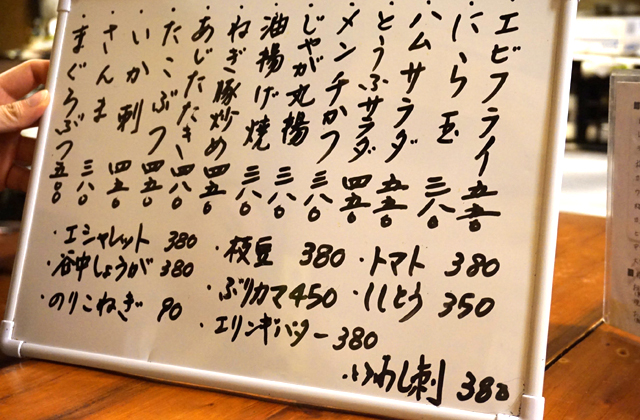 ・エビフライ 五五〇
・にら玉 三八〇
・ハムサラダ 五五〇
・とうふサラダ 四五〇
・メンチかつ 三八〇
・じゃが丸揚 三八〇
・油揚げ焼 三八〇
・ねぎ豚炒め 四五〇
・あじたたき 四八〇
・たこぶつ 四五〇
・いか刺 四五〇
・さんま 三八〇
・まぐろぶつ 五〇〇
・エシャレット 380
・谷中しょうが 380
・のりこねぎ 90
・枝豆 380
・ぶりカマ 450
・エリンギバター 380
・トマト 380
・ししとう 350
・いわし刺 380